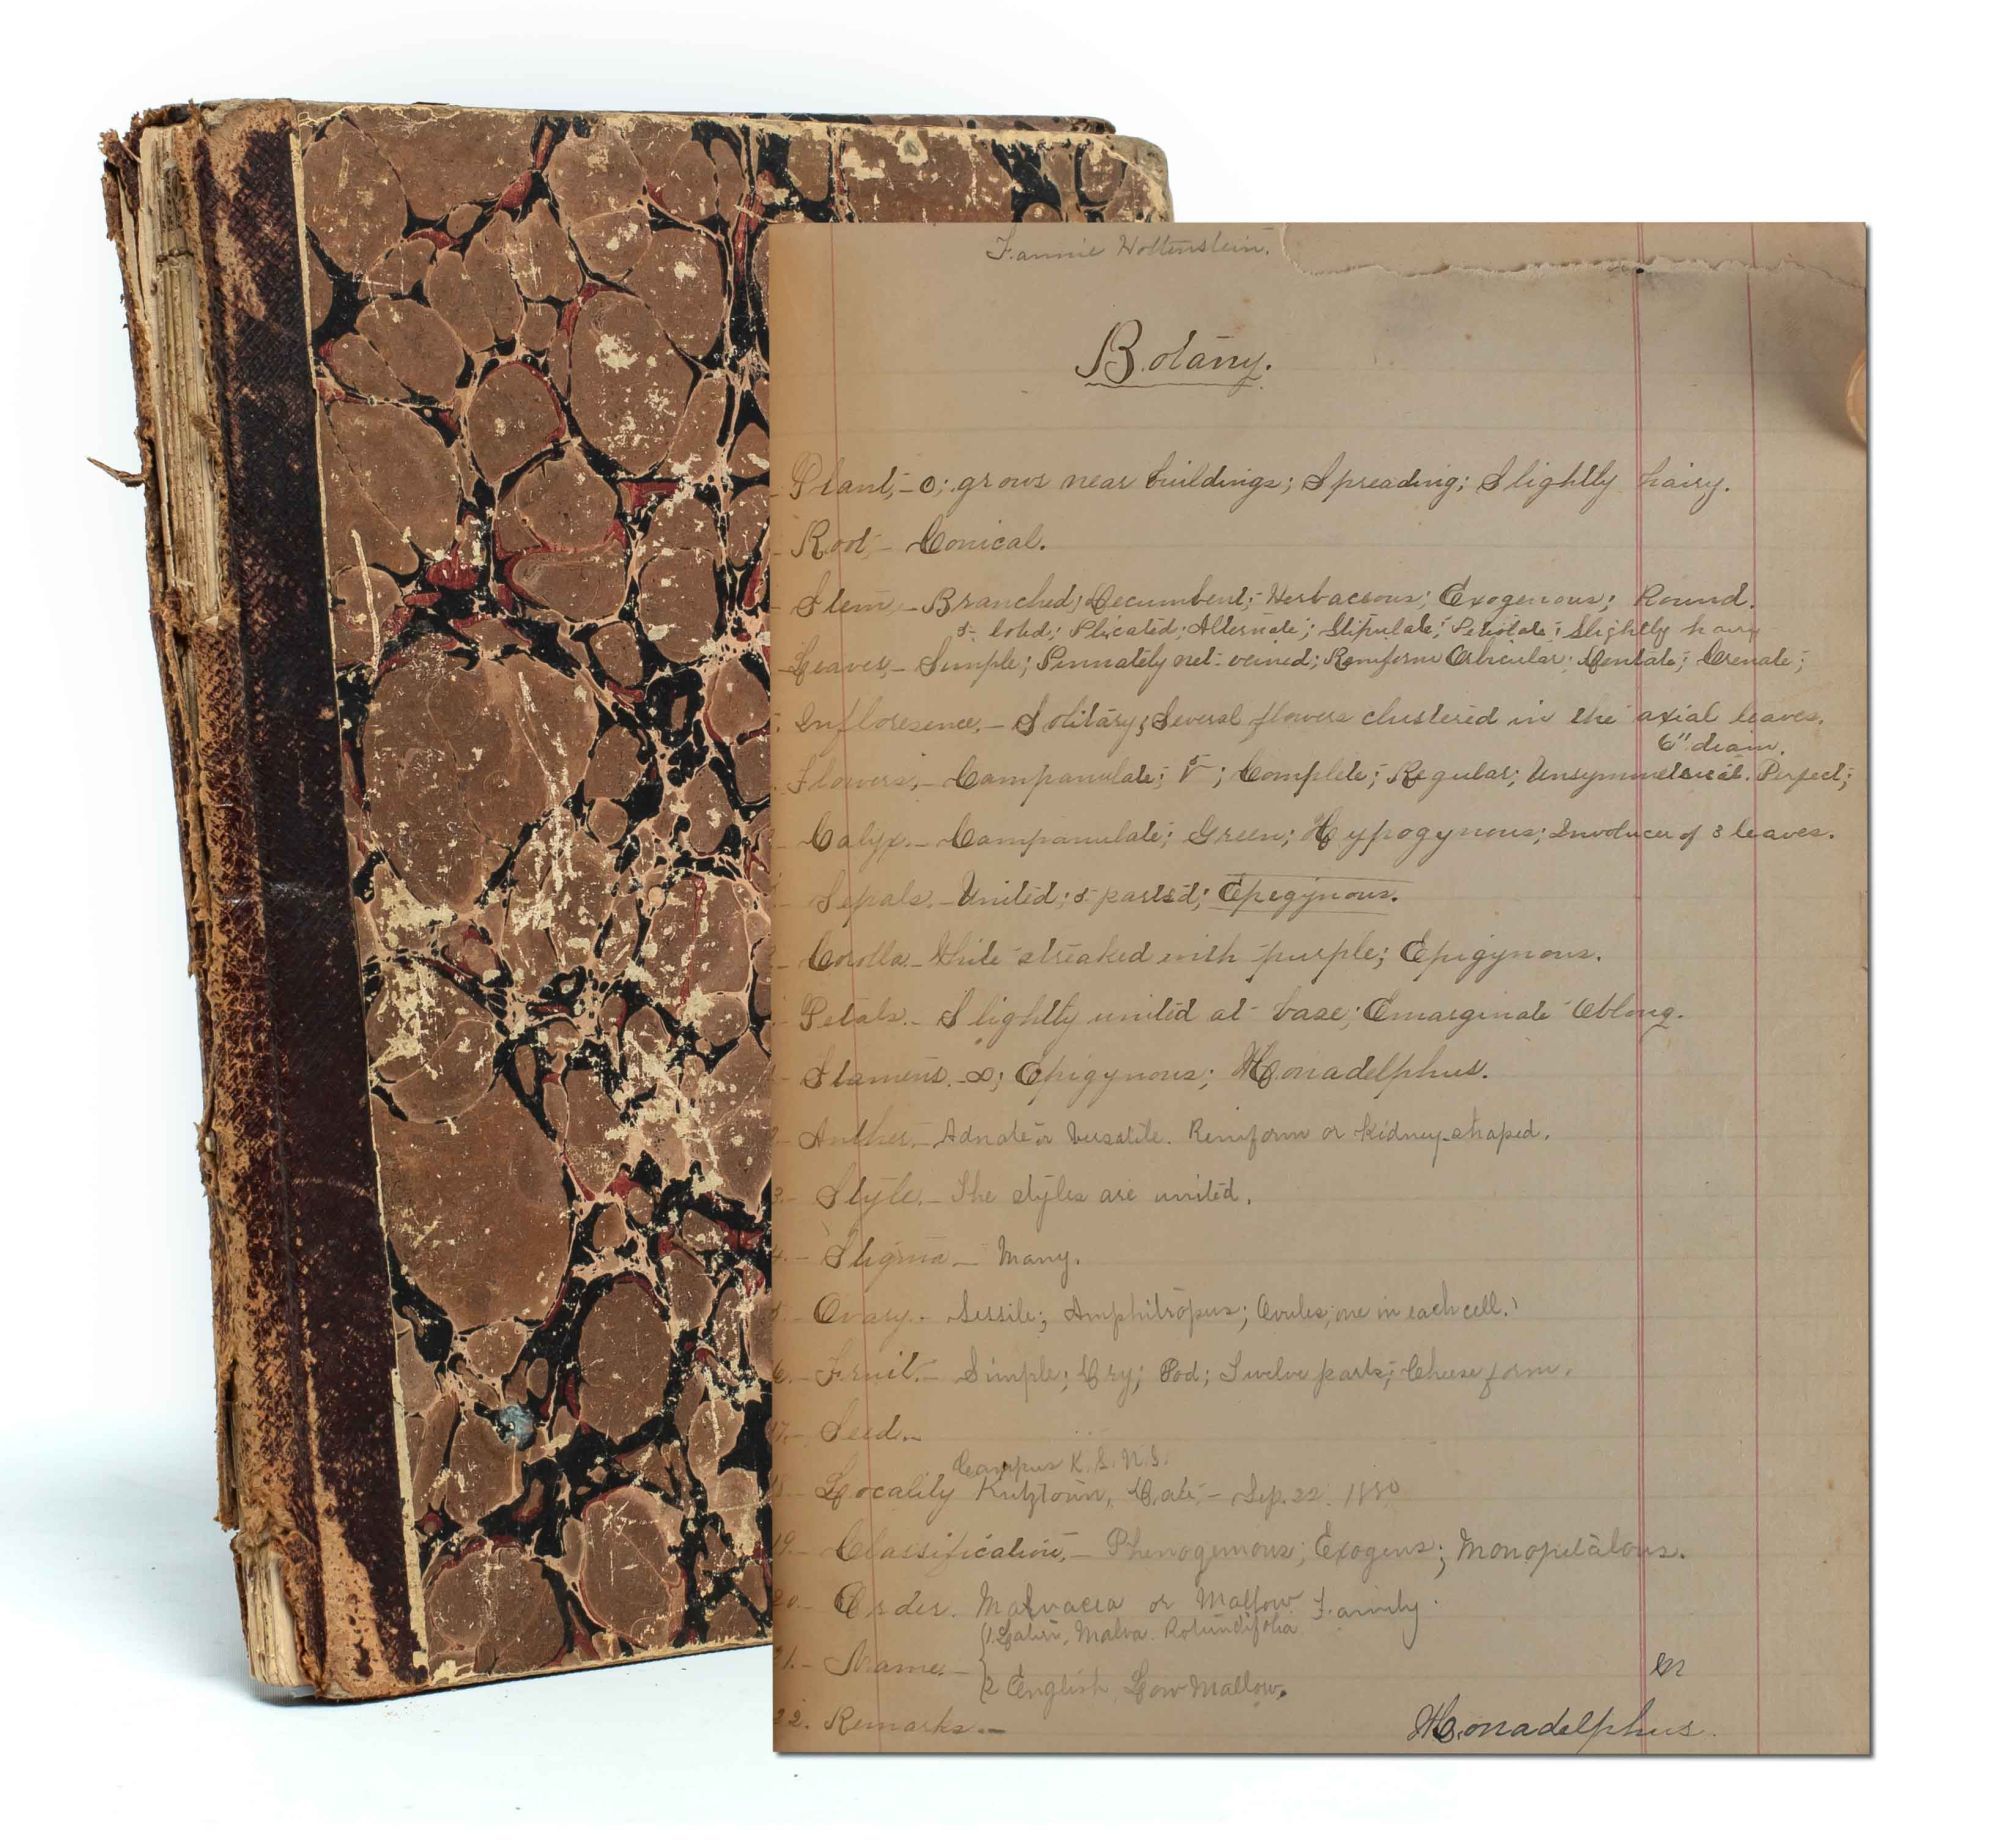 Fannie Hottenstein.
Botany.
- Plant,- o; grows near buildings; Spreading; Slightly hairy.
- Root,- Conical.
- Stem,- Branched; Decumbent; Herbaceous; Exogenous; Round.
5- lobed; Plicated; Alternate; Stipulate; Petiolate; Slightly hairy
- Leaves,- Simple; Pinnately net-veined; Reniform Orbicular; Dentate; Crenate;
- Infloresence,- Solitary; Several flowers clustered in the axial leaves.
6" diam.
- Flowers,- Campanulate; 5; Complete; Regular; Unsymmetrical. Perfect;
- Calyx.- Campanulate; Green; Hypogynous; Involucer of 3 leaves.
- Sepals.- United; 5 parted; Epegynous.
- Corolla- White streaked with purple; Epigynous.
- Petals.- Slightly united at base; Emarginate Oblong.
- Stamens.- ∞; Epigynous; Monadelphus.
2- Anther.- Adnate or Versatile. Reniform or Kidney-shaped.
3.- Style.- The styles are united.
4.- Stigma- Many.
5.- Ovary.- Sessile; Amphitropus; Ovules, one in each cell.
6.- Fruit.- Simple; Dry; Pod; Twelve parts; Cheese form.
17.- Seed.-
Campus K.S.N.S.
18- Locality Kutztown, Date,- Sep. 22. 1880
19.- Classification,- Phenogemous; Exogens; Monopetalous.
20.- Order. Malvacea or Mallow Family.
1. Latin, Malva. Rotundifolia
21.- Name-
2 English, Low Mallow.
en
22. Remarks.- Monadelphus.